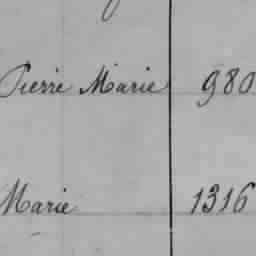 Pierre Marie 980
Marie 1316